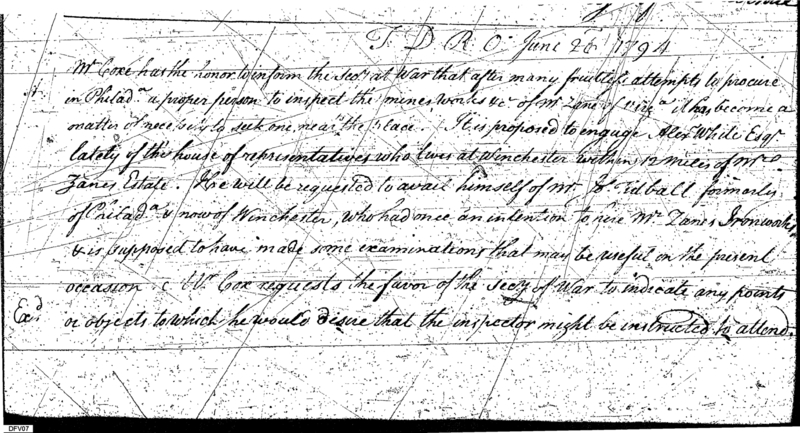 T. D. R. O. June 26 1794
Mr Coxe has the honor to inform the Secy at War that after many fruitless attempts to procure
in Philada a proper person to inspect the mines works &c of Mr Zane of Virga it has become a
matter of necessity to seek one near the place. It is proposed to engage Alex White Esqr
lately of the house of representatives who lives at Winchester within 12 miles of Mr
Zanes Estate. He will be requested to avail himself of Mr Tidball formerly
of Philada & now of Winchester, who had once an intention to hire Mr Zanes Ironworks,
& is supposed to have made some examinations that may be useful on the present
occasion. Mr Cox requests the favor of the Secy of War to indicate any points
Exd or objects to which he would desire that the inspector might be instructed to attend.
DFV07